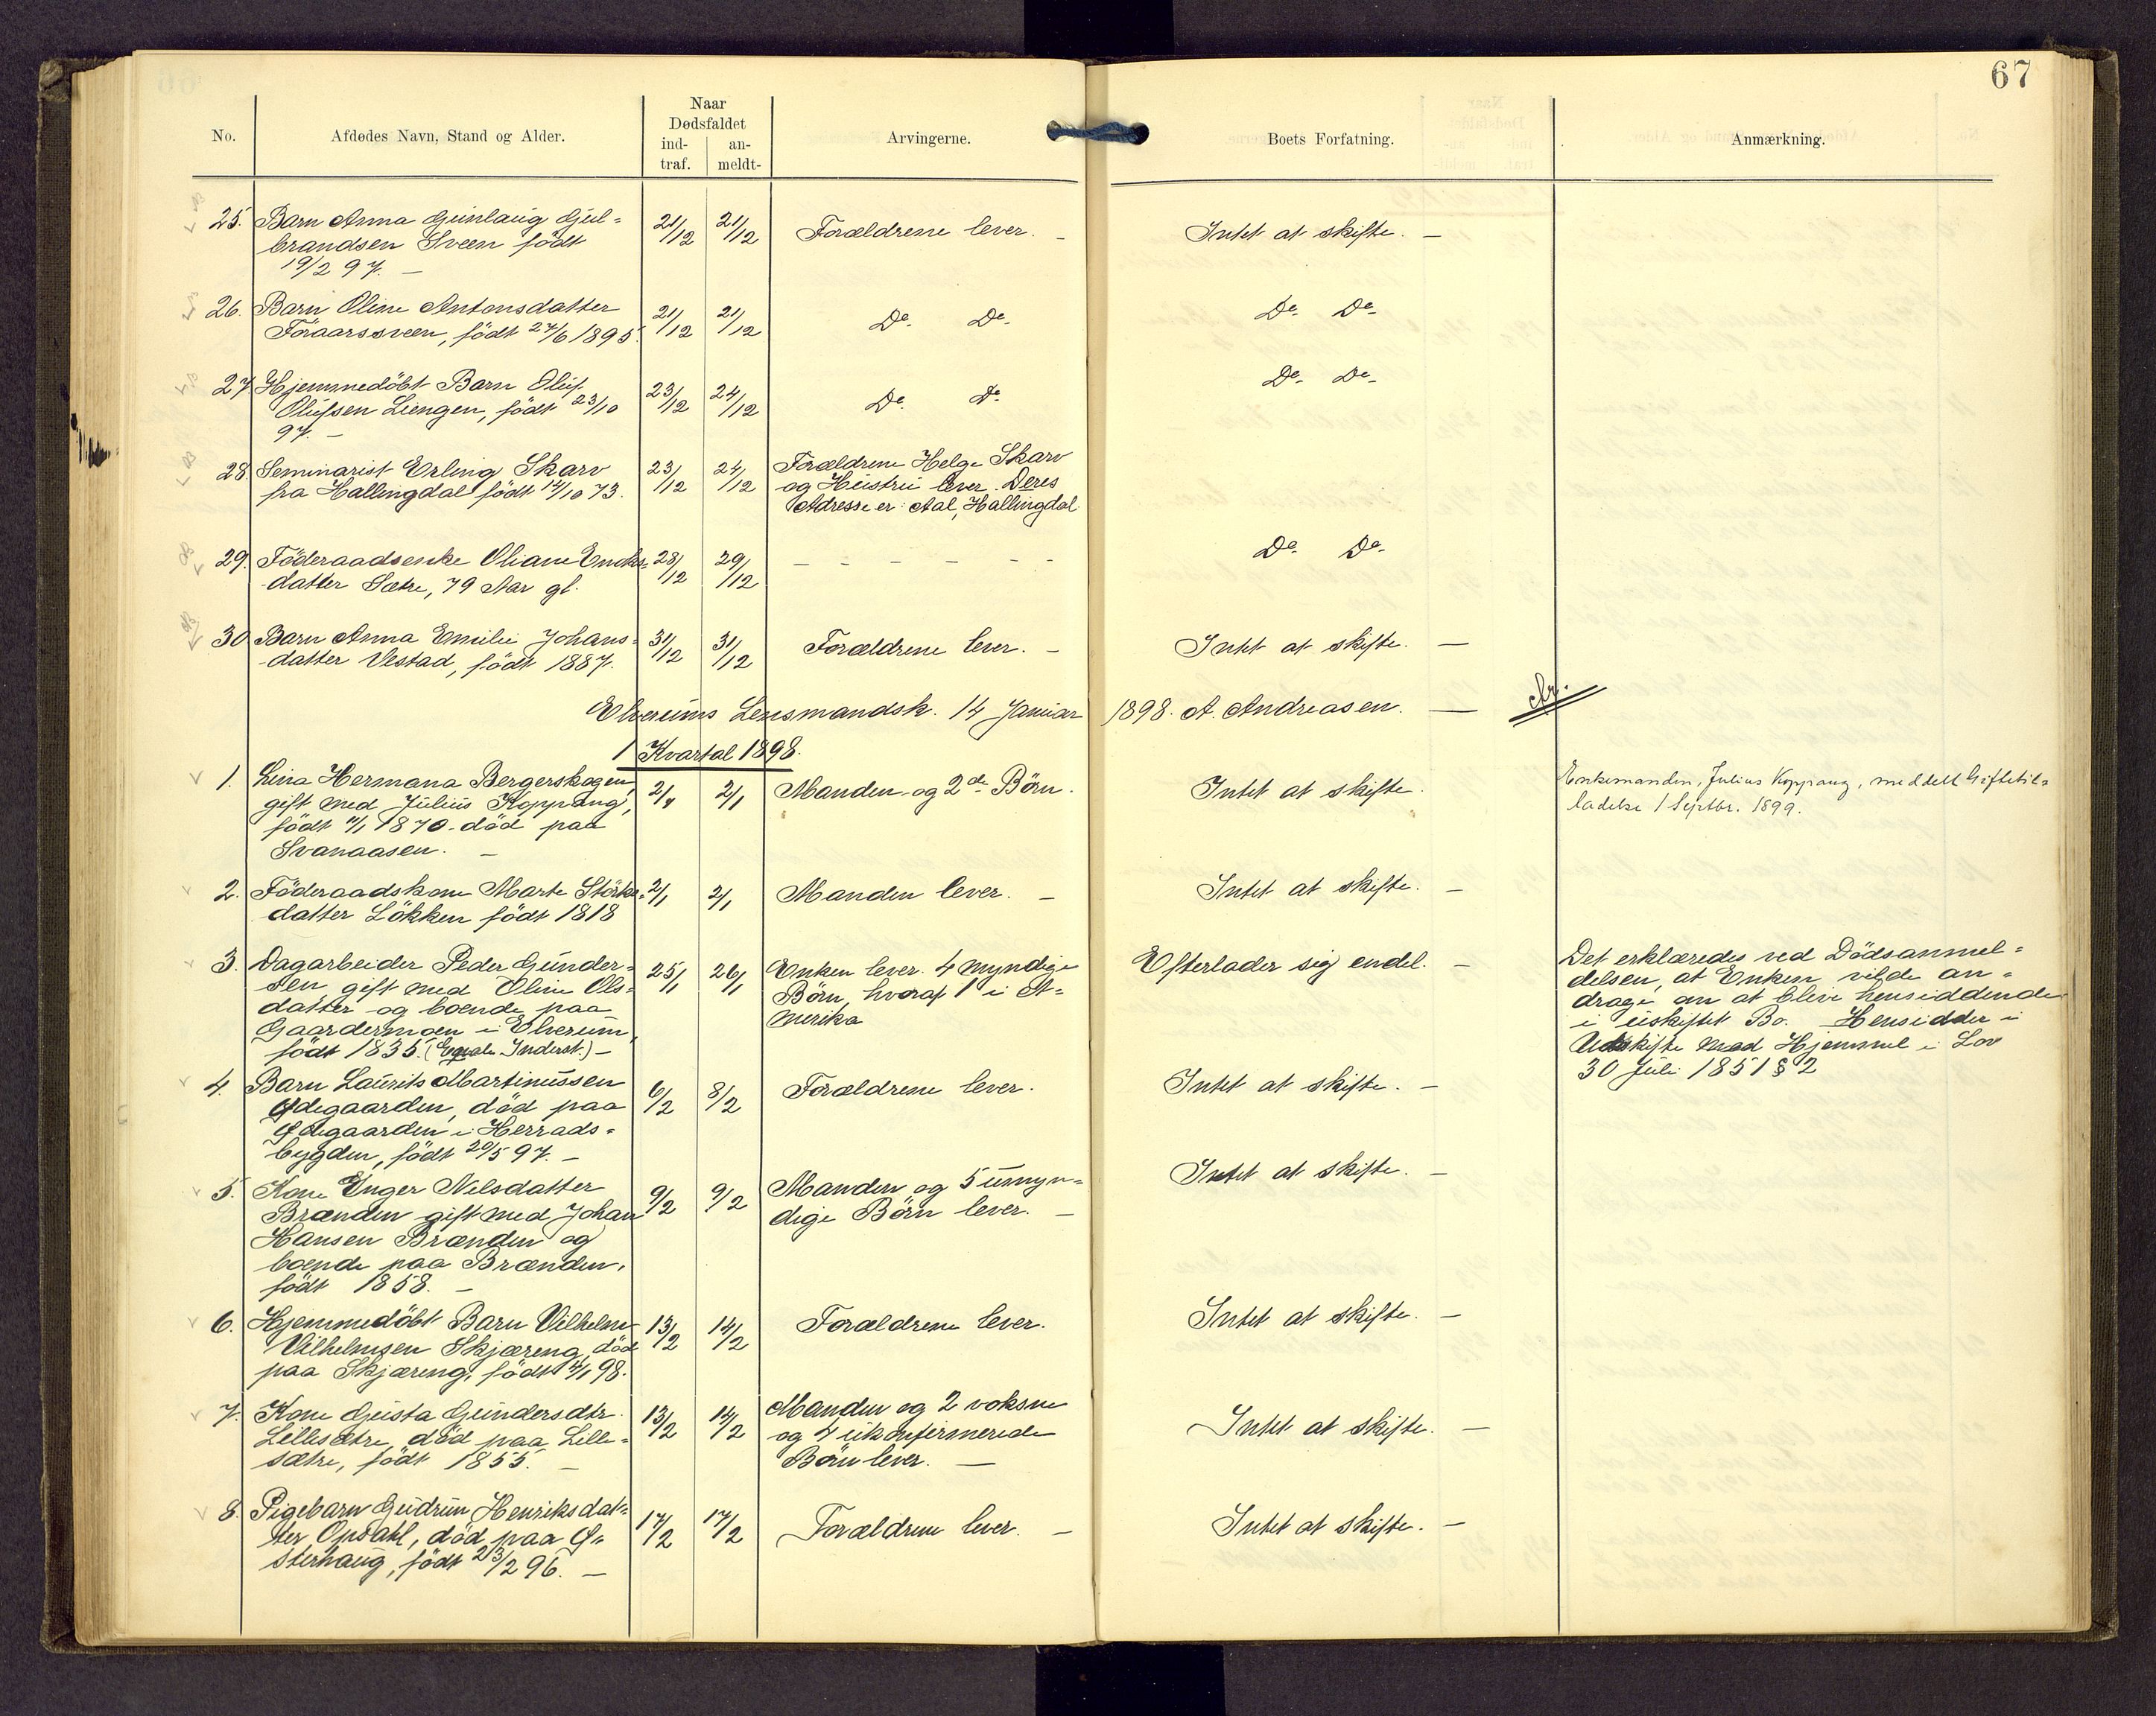 67
No.
Afdødes Navn, Stand og Alder.
Naar
Dødsfaldet
ind-
traf.
an-
meldt-
Arvingerne.
Boets Forfatning.
Anmærkning.
25. Barn Anna Gunlaug Gul=
brandsen Sveen född
19/2 97. —
21/12 21/12 Forældrene lever. — Intet at skifte. —
26. Barn Oline Antonsdatter
Foraarssveen, född 27/6 1895.
21/12 21/12 Do. Do. Do. Do.
27. Hjemmedöbt Barn Oluf
Olufsen Liengen, född 23/10
97. —
23/12 24/12 Do. Do. Do. Do.
28. Seminarist Erling Skarv
fra Hallingdal född 14/10 73.
23/12 24/12 Forældrene Helge Skarv
og Hustru lever. Deres
Adresse er: Aal, Hallingdal
29. Föderaadsenke Oliane
datter Sætre, 79 Aar gl.
28/12 29/12 — — — — — — Do. Do.
30. Barn Anna Emilie Johans=
datter Vestad, född 1887.
31/12 31/12 Forældrene lever. — Intet at skifte. —
Elverums Lensmandsk. 14 Januar 1898. A. Andreasen. —
1 Kvartal 1898.
1. Lina Hermana Bergerskogen,
gift med Julius Koppang,
född 1870 - död paa
Svanaasen. —
2/1 Manden og 2de Börn. Intet at skifte.
Enkemanden, Julius Koppang, meddelt Giftetil=
ladelse 1 Septbr. 1899.
2. Föderaadskone Marte
datter Lökken född 1818
2/1 2/1 Manden lever. — Intet at skifte. —
3. Dagarbeider Peder Gunder=
sen gift med Oline Ols=
datter og boende paa
Gaardermoen i Elverum,
född 1835. Inderst.) —
25/1 26/1 Enken lever. 4 myndige
Börn, hvoraf 1 i A=
merika
Efterlader sig endel. —
Det erklæredes ved Dödsanmel=
delsen, at Enken vilde an=
drage om at blive hensiddende
i uskiftet Bo. Hensidder i
Uskifte med Hjemmel i Lov
30 Juli 1851 § 2
4. Barn Laurits Martinussen
Ødegaarden, död paa
Ødegaarden i Herrads=
bygden, född 20/5 97. —
6/2 8/2 Forældrene lever. Intet at skifte. —
5. Kone Inger Nilsdatter
Brænden gift med Johan
Hansen Brænden og
boende paa Brænden,
född 1858. —
9/2 9/2 Manden og 5 umyn=
dige Börn lever. —
Intet at skifte. —
6. Hjemmedöbt Barn Vilhelm
Vilhelmsen Skjæreng, död
paa Skjæreng, född 98.
13/2 14/2 Forældrene lever. Intet at skifte. —
7. Kone Gusta Gundersdtr.
Lillesætre, död paa Lille=
sætre, född 1855. —
13/2 14/2 Manden og 2 voksne
og 4 ukonfirmerede
Börn lever. —
Intet at skifte. —
8. Pigebarn Gudrun Henriksdat=
ter Opsahl, död paa Ø=
sterhaug, född 23/2 96. —
17/2 17/2 Forældrene lever. — Intet at skifte. —